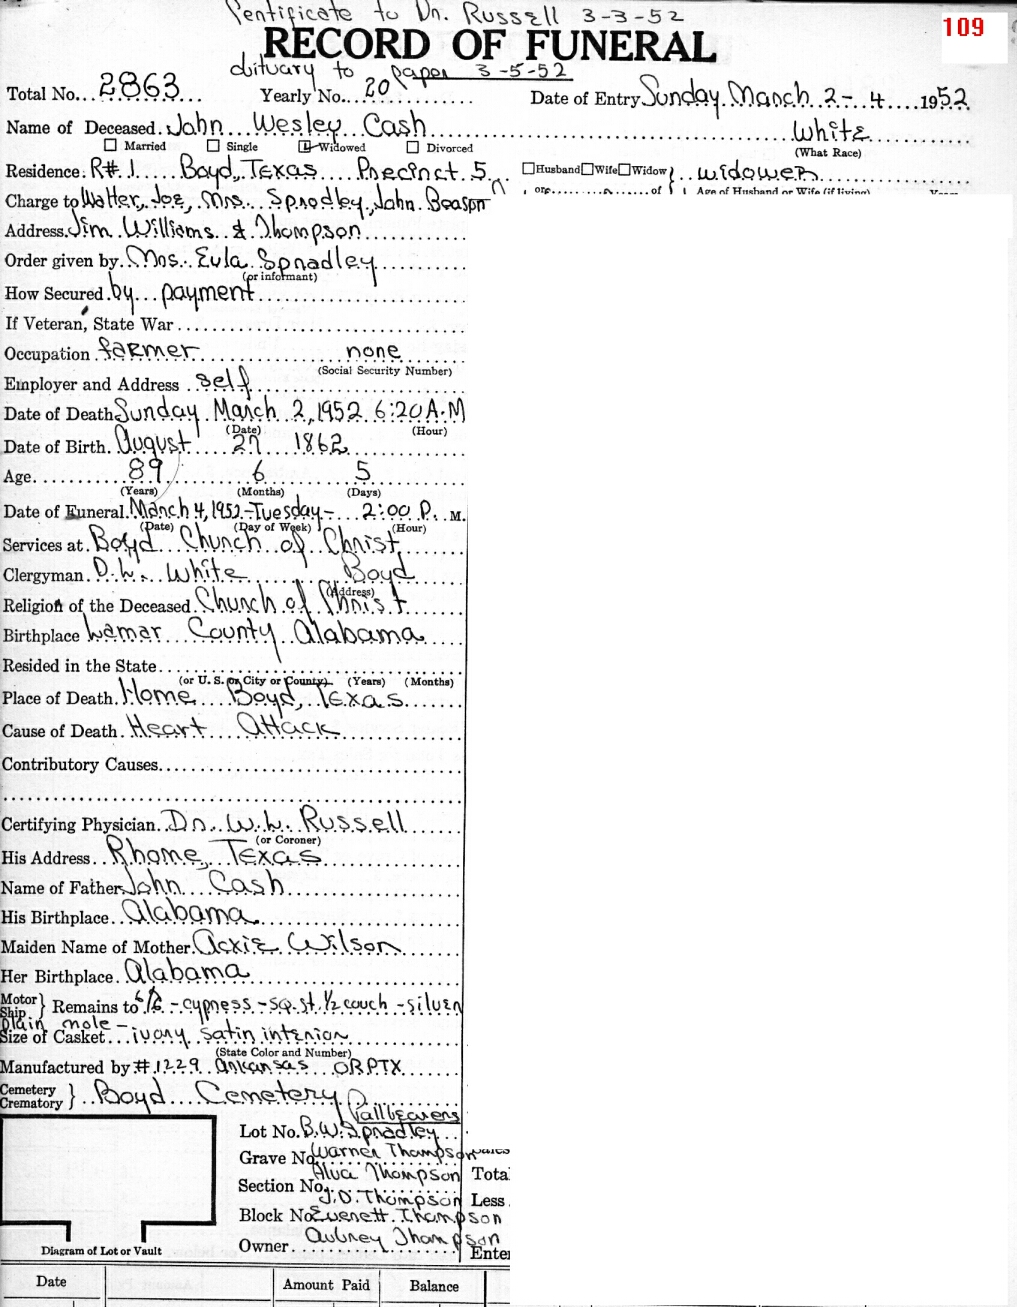 Certificate to Dr. Russell 3-3-52
109
RECORD OF FUNERAL
obituary to paper 3-5-52
Total No... 2863 Yearly No... 20 Date of Entry Sunday March 2-4 1952
Name of Deceased. John Wesley Cash White
☐ Married ☐ Single ☑ Widowed ☐ Divorced (What Race)
Residence. R#.1 Boyd, Texas Precinct 5 ☐Husband☐Wife☐Widow} widower
or of Age of Husband or Wife (if living)
Charge to Walter, Joe, Mrs. Spradley, John Beason
Address. Jim Williams & Thompson
Order given by. Mrs. Eula Spradley
(or informant)
How Secured. by payment
If Veteran, State War
Occupation farmer none
(Social Security Number)
Employer and Address self
Date of Death Sunday March 2, 1952 6:20 A.M
(Date) (Hour)
Date of Birth. August 27 1862
Age. 89 6 5
(Years) (Months) (Days)
Date of Funeral. March 4, 1952-Tuesday- 2:00 P. M.
(Date) (Day of Week) (Hour)
Services at Boyd Church of Christ
Clergyman. D.L. White Boyd
(Address)
Religion of the Deceased Church of Christ
Birthplace Lamar County Alabama
Resided in the State
(or U. S. or City or County) (Years) (Months)
Place of Death. Home Boyd, Texas
Cause of Death. Heart Attack
Contributory Causes
Certifying Physician. Dr. W.L. Russell
(or Coroner)
His Address Rhome, Texas
Name of Father John Cash
His Birthplace Alabama
Maiden Name of Mother. Ackie Wilson
Her Birthplace. Alabama
Motor Ship } Remains to -cypress-sq.st. 1/2 couch -silver
plain mole-
Size of Casket ivory satin interior
(State Color and Number)
Manufactured by #1229 Arkansas
Cemetery Crematory } Boyd Cemetery
Pallbearers
Lot No. B.W. Spradley
Grave No. Warner Thompson
Alva Thompson Tota
Section No. J.D. Thompson Less
Block No. Everett Thompson
Owner Aubrey Thompson Enter
Diagram of Lot or Vault
Date Amount Paid Balance